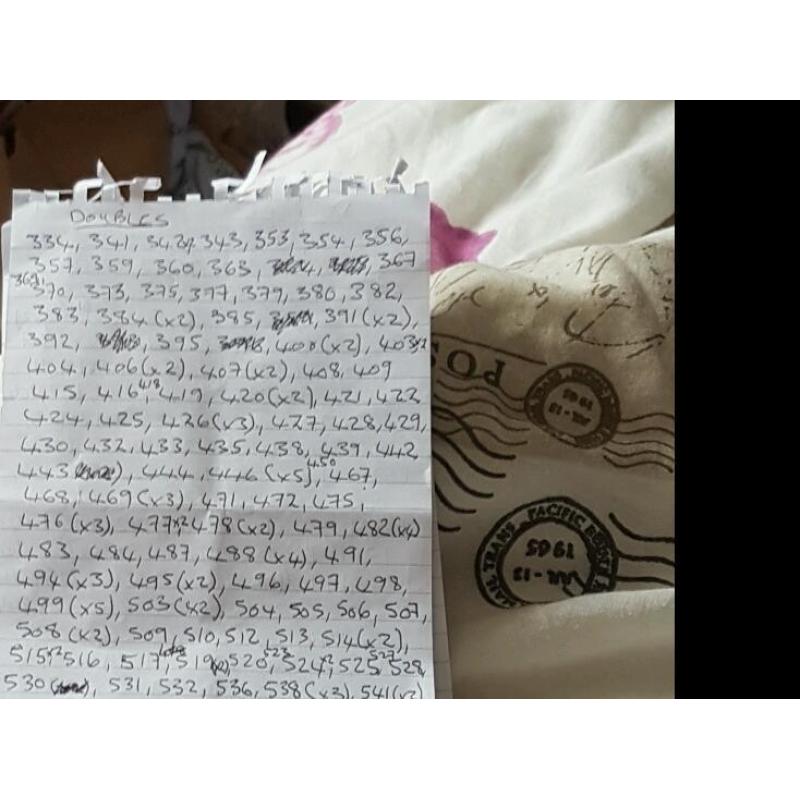 DOUBLES
334, 341, 342, 343, 353, 354, 356,
357, 359, 360, 363, 367
369,
370, 373, 375, 377, 379, 380, 382,
383, 384(x2), 385, 391(x2),
392, 395, 400(x2), 403x2
404, 406(x2), 407(x2), 408, 409
415, 416, 418, 419, 420(x2), 421, 422,
424, 425, 426(x3), 427, 428, 429,
430, 432, 433, 435, 438, 439, 442
443, 444, 446(x5), 450, 467,
468, 469(x3), 471, 472, 475,
476(x3), 477x2, 478(x2), 479, 482(x4)
483, 484, 487, 488(x4), 491,
494(x3), 495(x2), 496, 497, 498,
499(x5), 503(x2), 504, 505, 506, 507,
508(x2), 509, 510, 512, 513, 514(x2),
515x2, 516, 517, 519, 520, 523, 524x2, 525, 527, 528,
530, 531, 532, 536, 538(x3), 541(x2)
POS
PACIFIC
19 65
JUL-13
MAIL TRANS-PACIFIC
1965
JUL-13